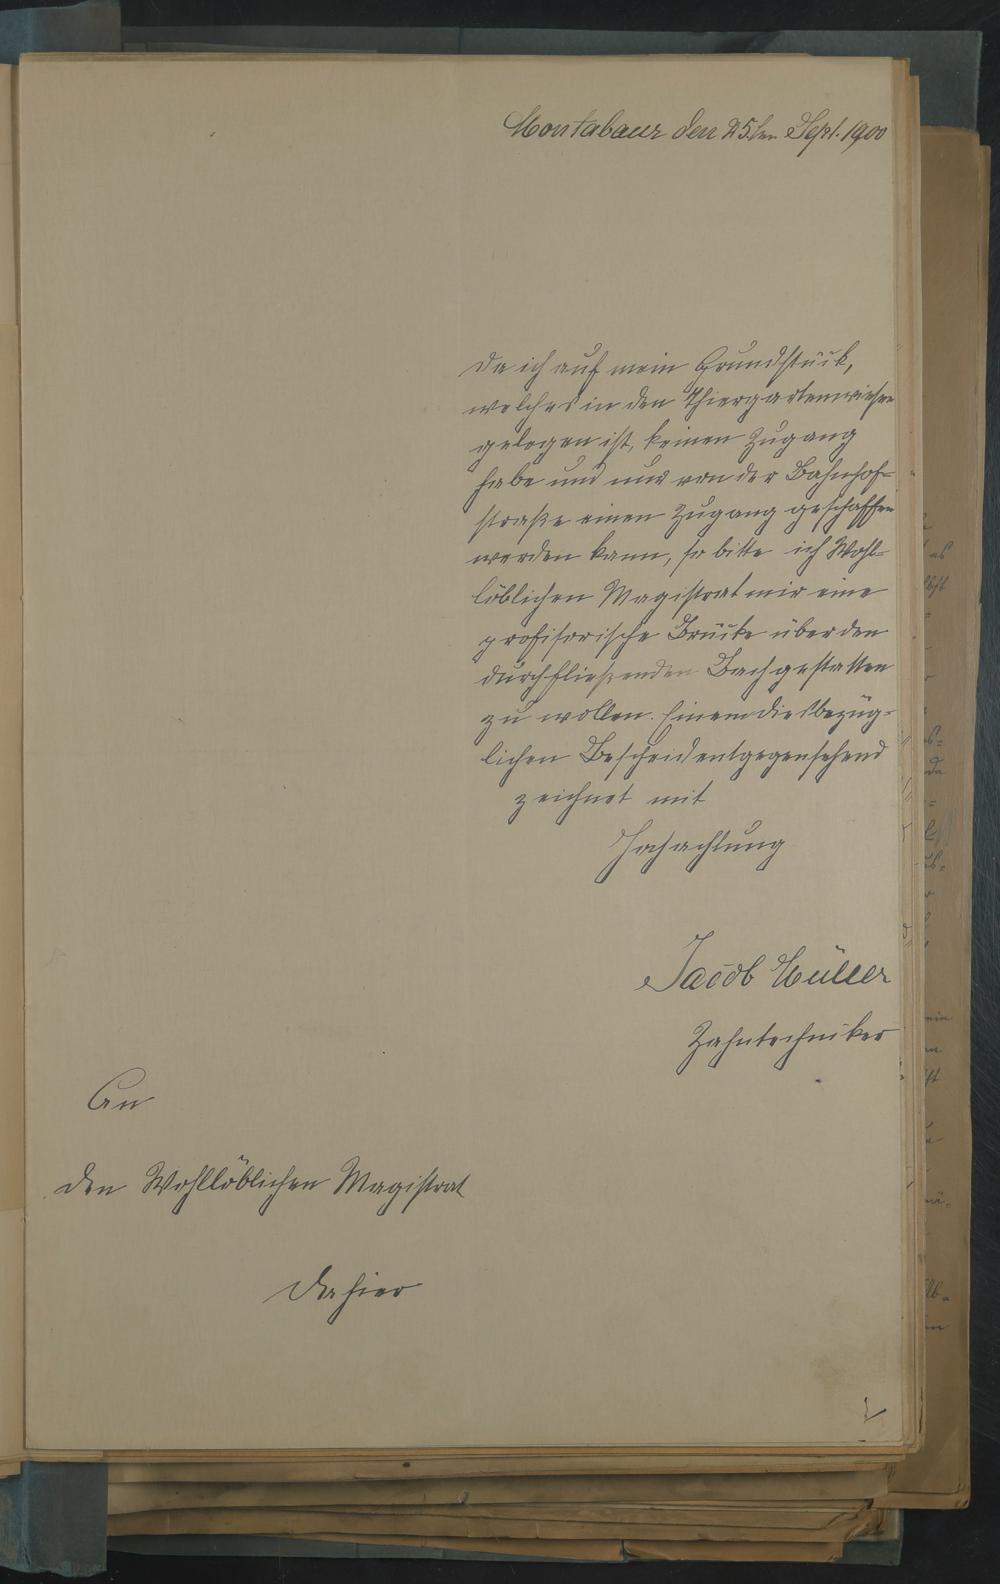 Montabaur den 25ten Sept. 1900
Da ich auf mein Grundstück,
welches in den Thiergartenwiesen
gelegen ist, keinen Zugang
habe und nur von der Bahnhof-
straße einen Zugang geschaffen
werden kann, so bitte ich Wohl-
löblichen Magistrat mir eine
profisorische Brücke über den
durchfließenden Bach gestatten
zu wollen. Einem diesbezüg-
lichen Bescheid entgegensehend
zeichnet mit
Hochachtung
Jacob Müller
Zahntechniker
An
den Wohllöblichen Magistrat
Dahier